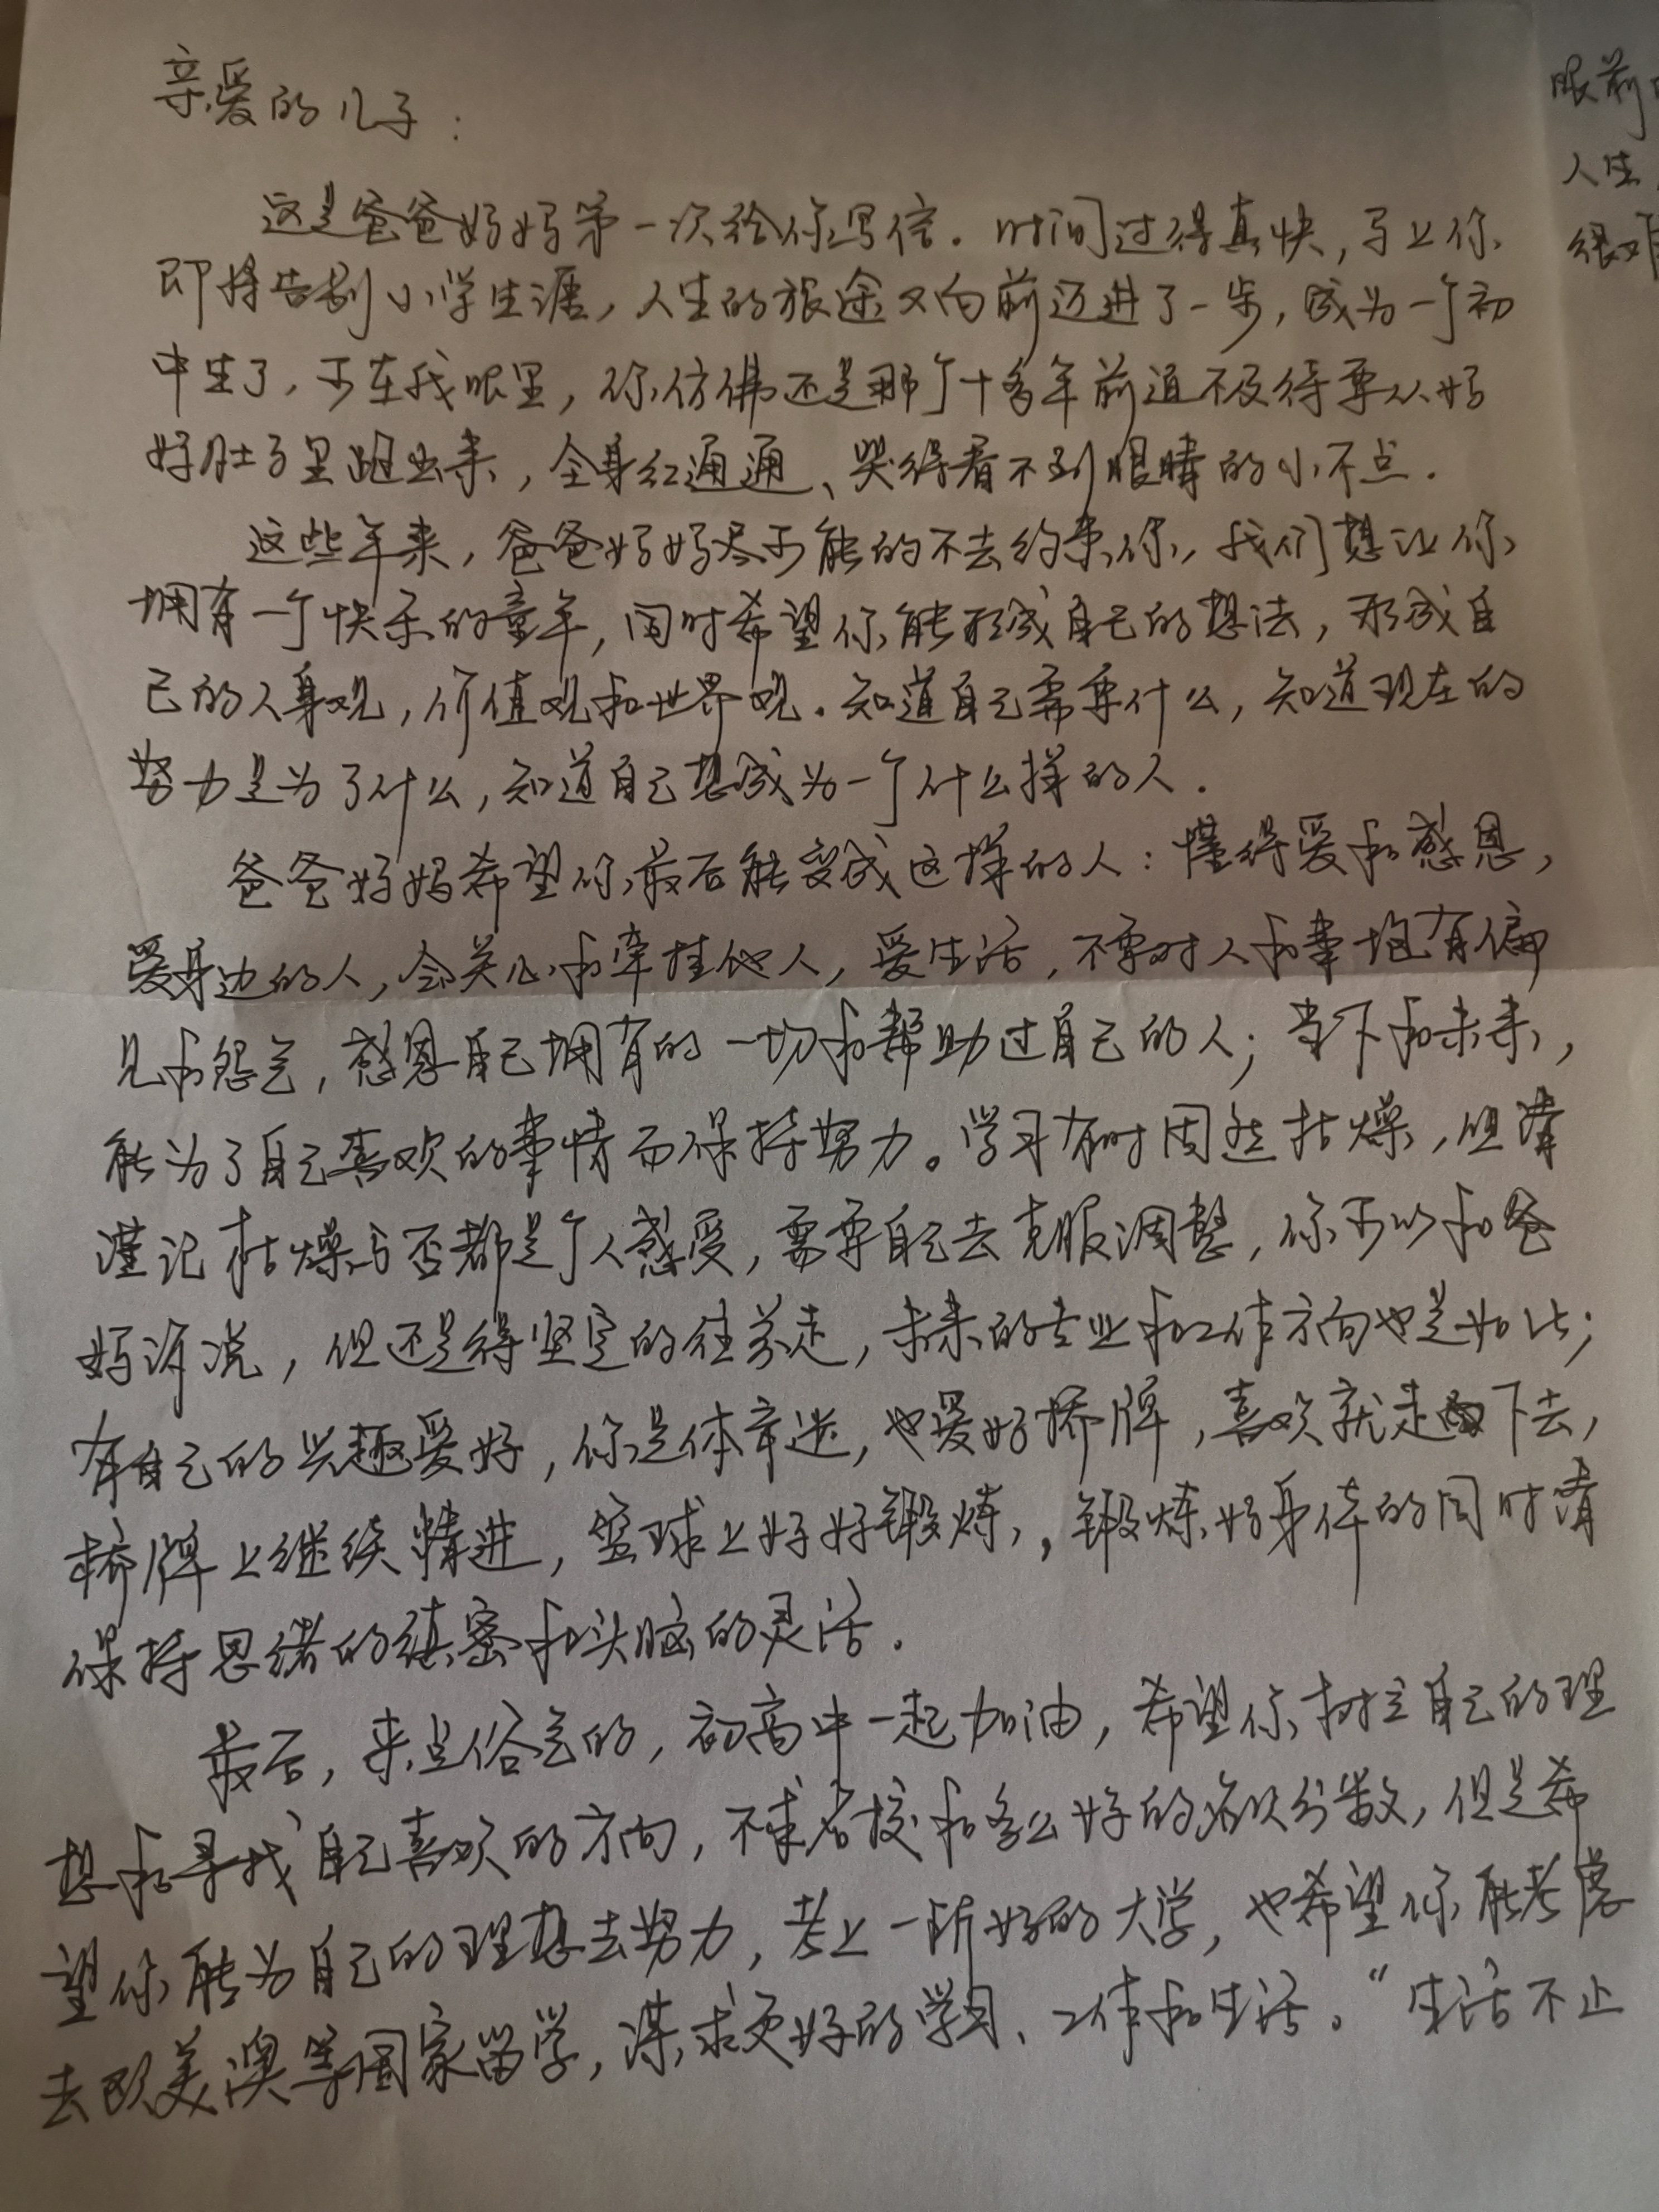 亲爱的儿子：
这是爸爸妈妈第一次给你写信。时间过得真快，马上你
即将告别小学生涯，人生的旅途又向前迈进了一步，成为一个初
中生了，可在我眼里，你仿佛还是那个十多年前迫不及待要从妈
妈肚子里跑出来，全身红通通、哭得看不到眼睛的小不点。
这些年来，爸爸妈妈尽可能的不去约束你，我们想让你
拥有一个快乐的童年，同时希望你能形成自己的想法，形成自
己的人身观，价值观和世界观。知道自己需要什么，知道现在的
努力是为了什么，知道自己想成为一个什么样的人。
爸爸妈妈希望你最后能变成这样的人：懂得爱和感恩，
爱身边的人，会关心和牵挂他人，爱生活，不要对人和事抱有偏
见和怨气，感恩自己拥有的一切和帮助过自己的人；当下和未来，
能为了自己喜欢的事情而保持努力。学习有时固然枯燥，但请
谨记枯燥与否都是个人感受，需要自己去克服调整，你可以和爸
妈诉说，但还是得坚定的往前走，未来的专业和工作方向也是如此；
有自己的兴趣爱好，你是体育迷，也爱好桥牌，喜欢就走下去，
桥牌上继续精进，篮球上好好锻炼，锻炼好身体的同时请
保持思绪的缜密和头脑的灵活。
最后，来点俗气的，初高中一起加油，希望你树立自己的理
想和寻找自己喜欢的方向，不求名校和多么好的名次分数，但是希
望你能为自己的理想去努力，考上一所好的大学，也希望你能考虑
去欧美澳等国家留学，谋求更好的学习、工作和生活。“生活不止
眼前
人生
很难